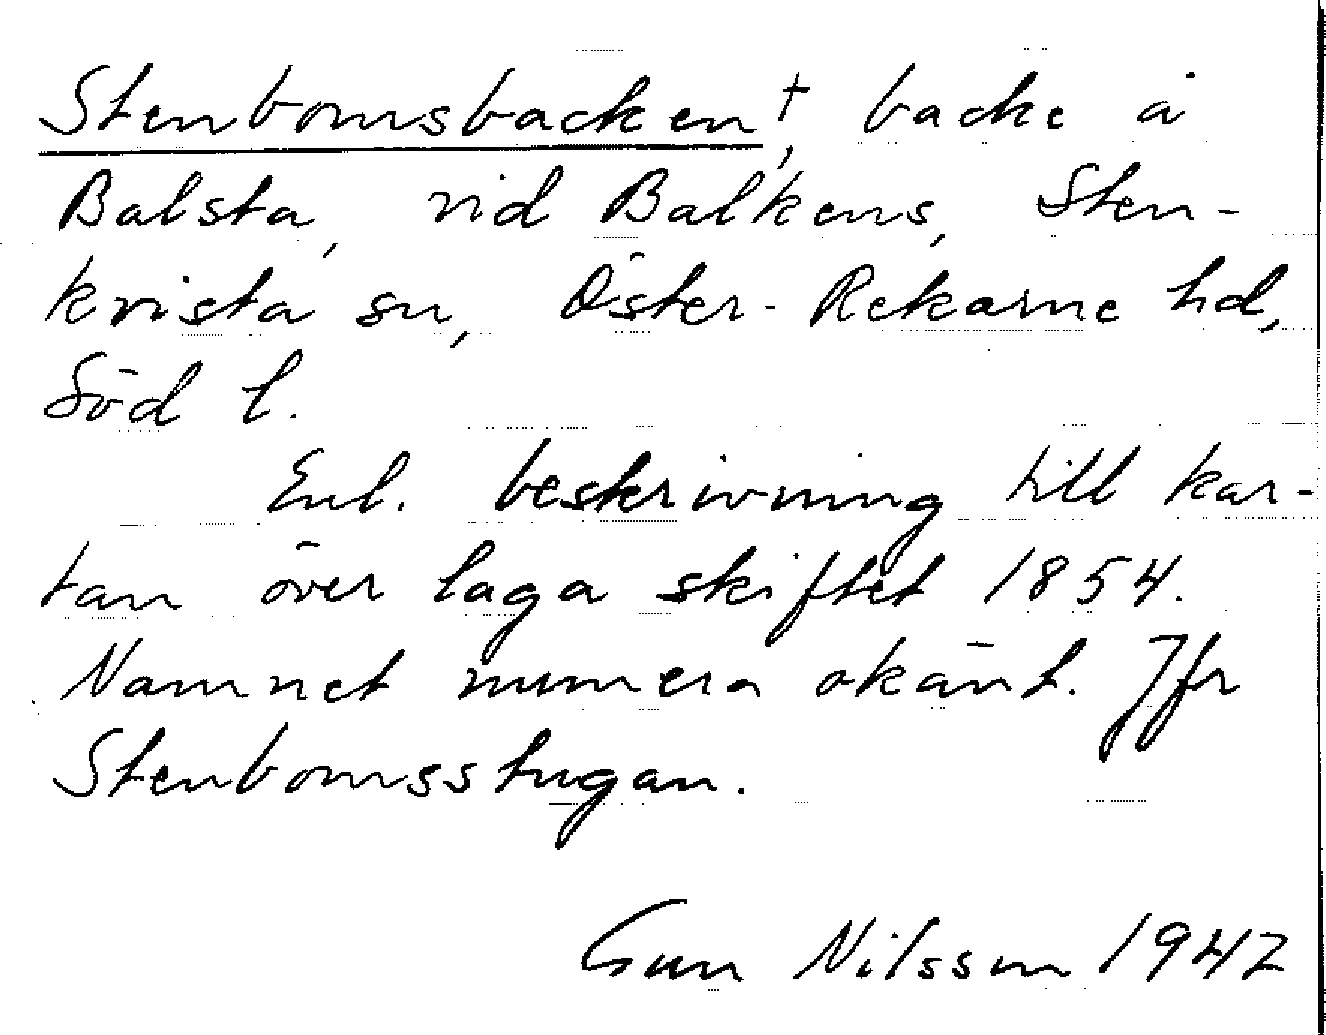 Stenbomsbacken†, backe å
Balsta, vid Balkens, Sten-
kvista sn, Öster-Rekarne hd,
Söd l.
Enl. beskrivning till kar-
tan över laga skiftet 1854.
Namnet numera okänt. Jfr
Stenbomsstugan.
Gun Nilsson 1942